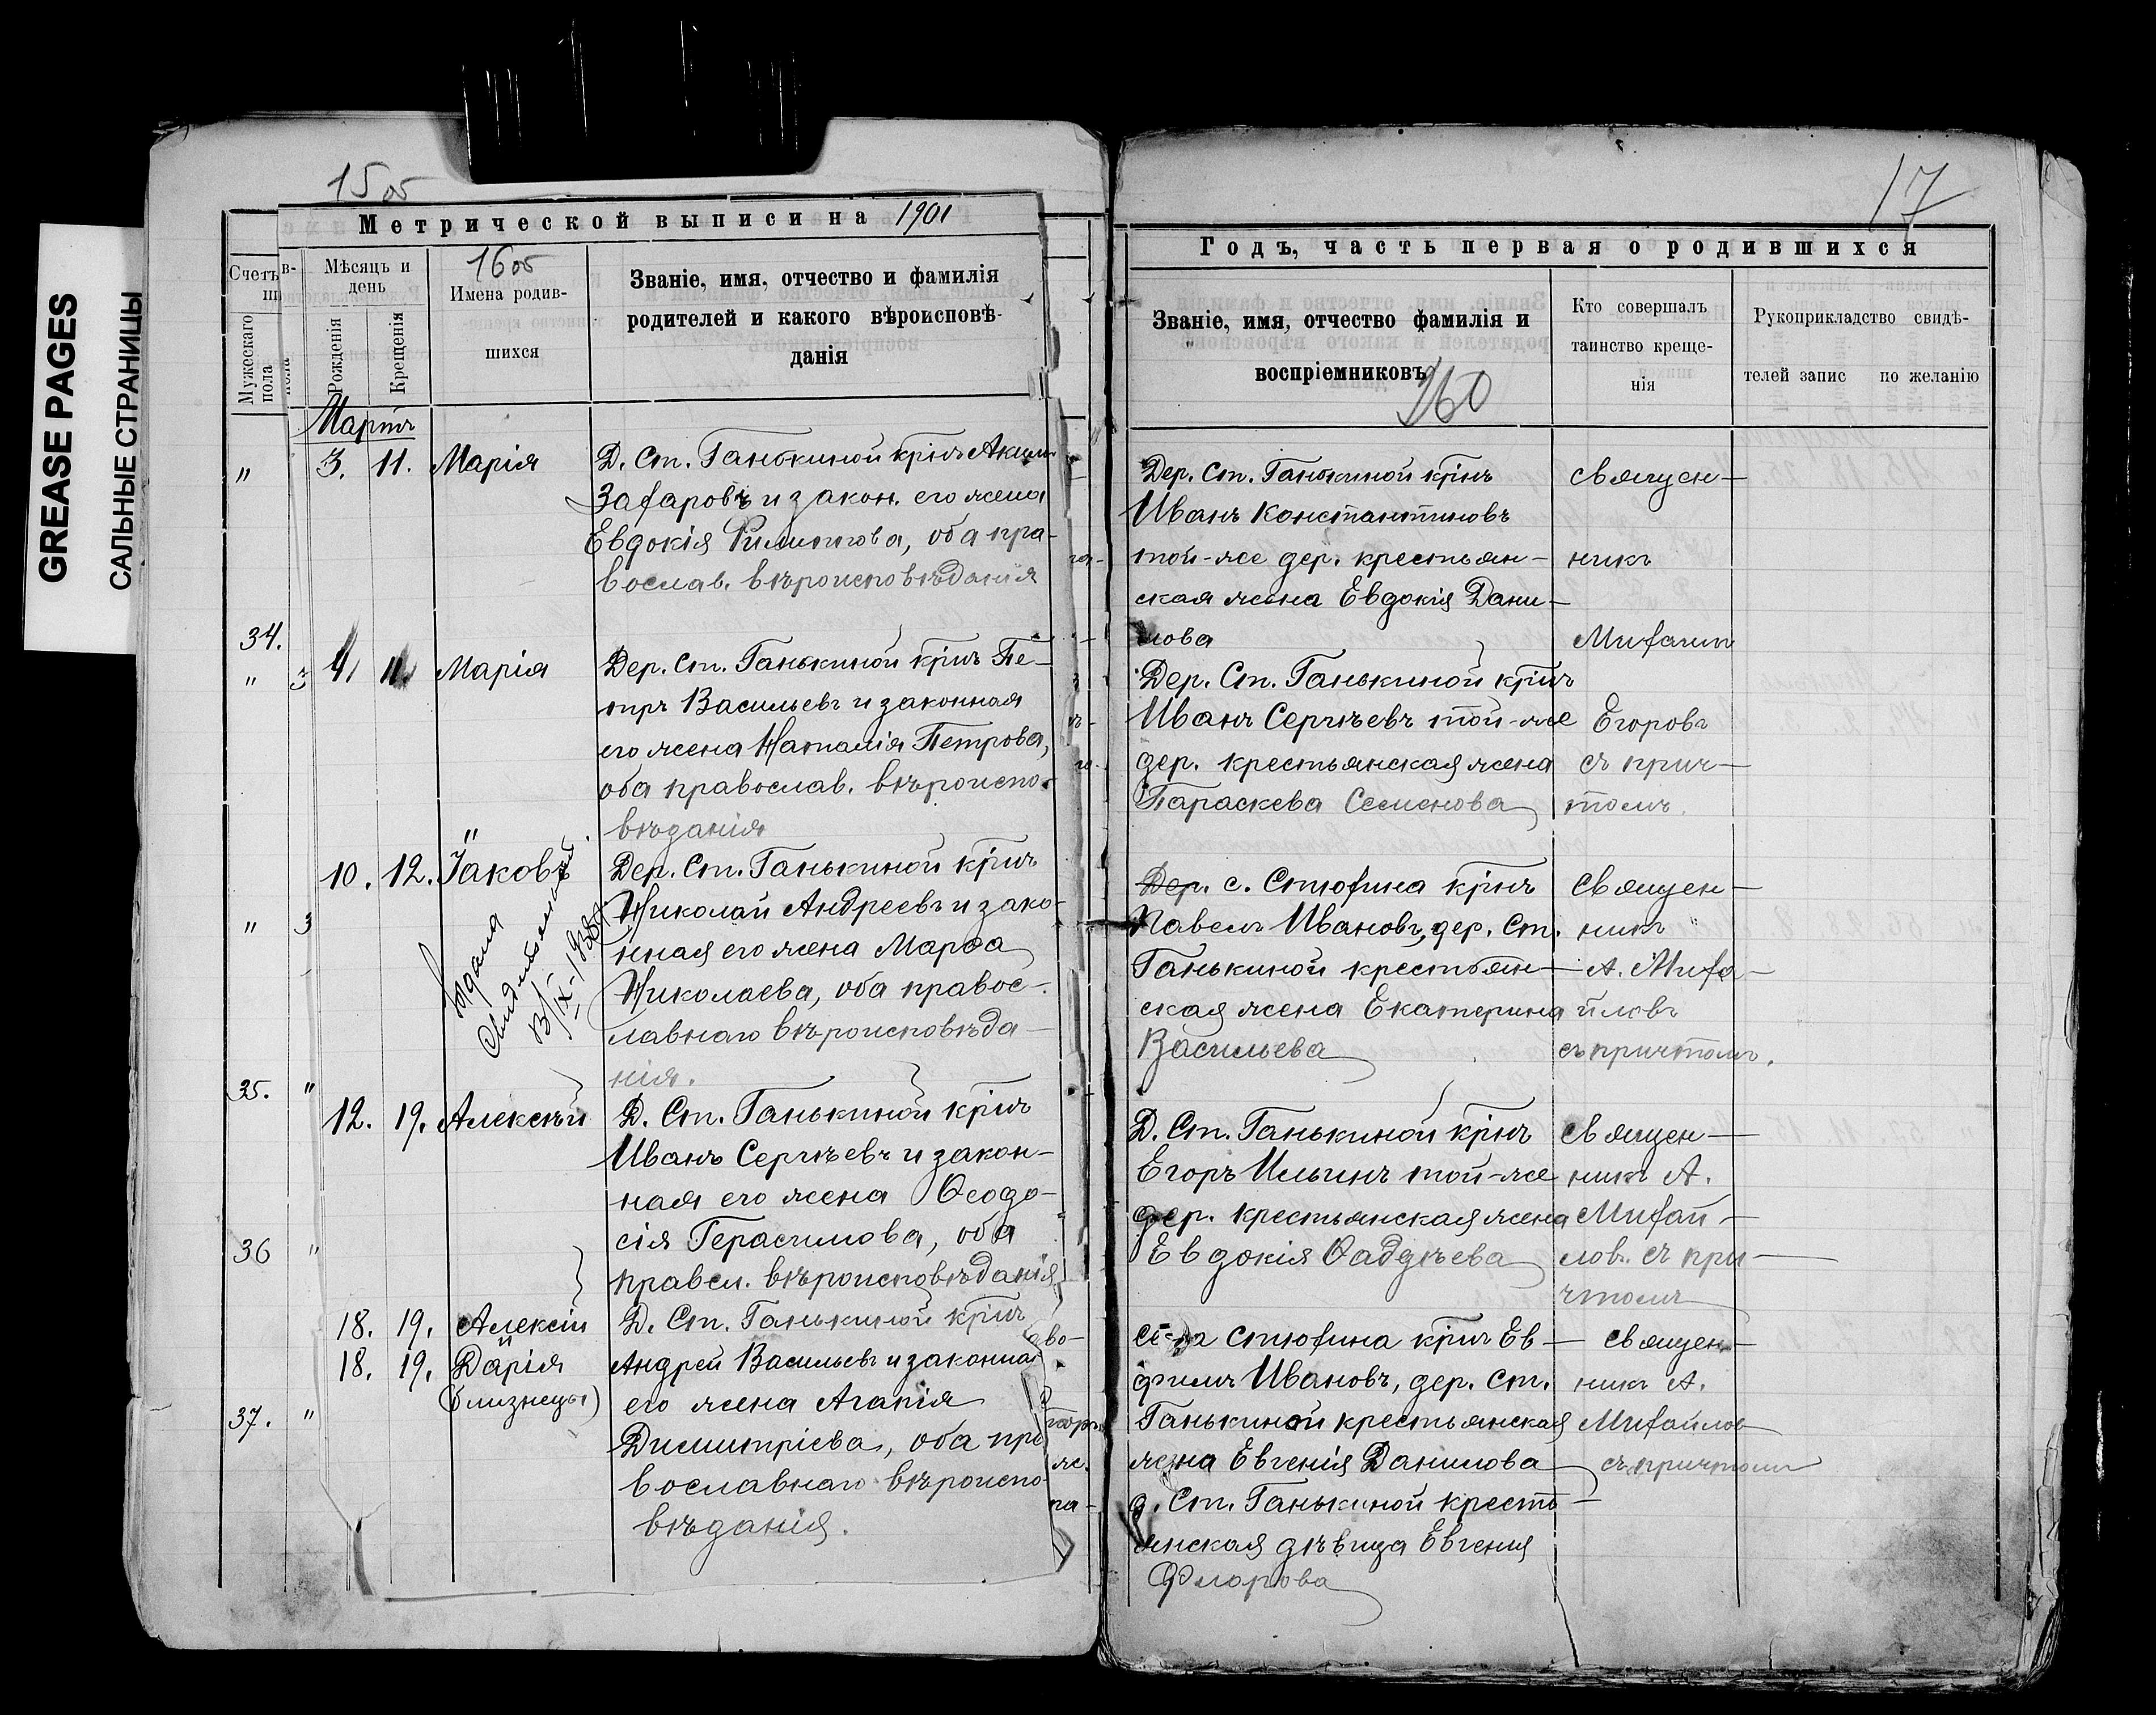 GREASE PAGES
САЛЬНЫЕ СТРАНИЦЫ
15 об
Метрической выписи на 1901
Счетъ
в-
ши
Мѣсяцъ и день
16 об
Имена родив-
шихся
Званіе, имя, отчество и фамилія
родителей и какого вѣроисповѣ-
данія
Мужескаго пола
пола
Рожденія
Крещенія
Мартъ
" 3. 11. Марія
Д. Ст. Ганькиной кр̄нъ Акимъ
Захаровъ и закон. его жена
Евдокія Филиппова, оба пра-
вослав. вѣроисповѣданія
34.
" 3 4. 11. Марія
Дер. Ст. Ганькиной кр̄нъ Пе-
тръ Васильевъ и законная
его жена Наталія Петрова,
оба православ. вѣроиспо-
вѣданія
" 3
10. 12. Іаковъ
Выдана
IX-1938
Дер. Ст. Ганькиной кр̄нъ
Николай Андреевъ и зако-
нная его жена Марѳа
Николаева, оба правос-
лавнаго вѣроисповѣда-
нія.
35. "
12. 19. Алексѣй
Д. Ст. Ганькиной кр̄нъ
Иванъ Сергѣевъ и закон-
ная его жена Ѳеодо-
сія Герасимова, оба
правсл. вѣроисповѣданія
36 "
18. 19. Алексій
18. 19. Дарія
(близнецы)
37. "
Д. Ст. Ганькиной кр̄нъ
Андрей Васильевъ и законная
его жена Агапія
Димитріева, оба пра
вославнаго вѣроиспо-
вѣданія.
17
Годъ, часть первая о родившихся
Званіе, имя, отчество фамилія и
воспріемниковъ
160
Кто совершалъ
таинство креще-
нія
Рукоприкладство свидѣ-
телей запис по желанію
Дер. Ст. Ганькиной кр̄нъ
Иванъ Константиновъ
той-же дер. крестьян-
ская жена Евдокія Дани-
лова
Священ-
никъ
Михаилъ
Дер. Ст. Ганькиной кр̄нъ
Иванъ Сергѣевъ той-же
дер. крестьянская жена
Параскева Семенова
Егоровъ
съ прич-
томъ.
Дер. с. Стюхина кр̄нъ
Павелъ Ивановъ, дер. Ст.
Ганькиной крестьян-
ская жена Екатерина
Васильева
Священ-
никъ
А. Миха-
йловъ
съ причтомъ.
Д. Ст. Ганькиной кр̄нъ
Егоръ Ильинъ той-же
дер. крестьянская жена
Евдокія Ѳаддѣева
Священ-
никъ А.
Михай-
ловъ съ при-
чтомъ
Стюхина кр̄нъ Ев-
фимъ Ивановъ, дер. Ст.
Ганькиной крестьянская
жена Евгенія Данилова
д. Ст. Ганькиной кресть-
янская дѣвица Евгенія
Флорова
Священ-
никъ А.
Михайлов
съ причтомъ